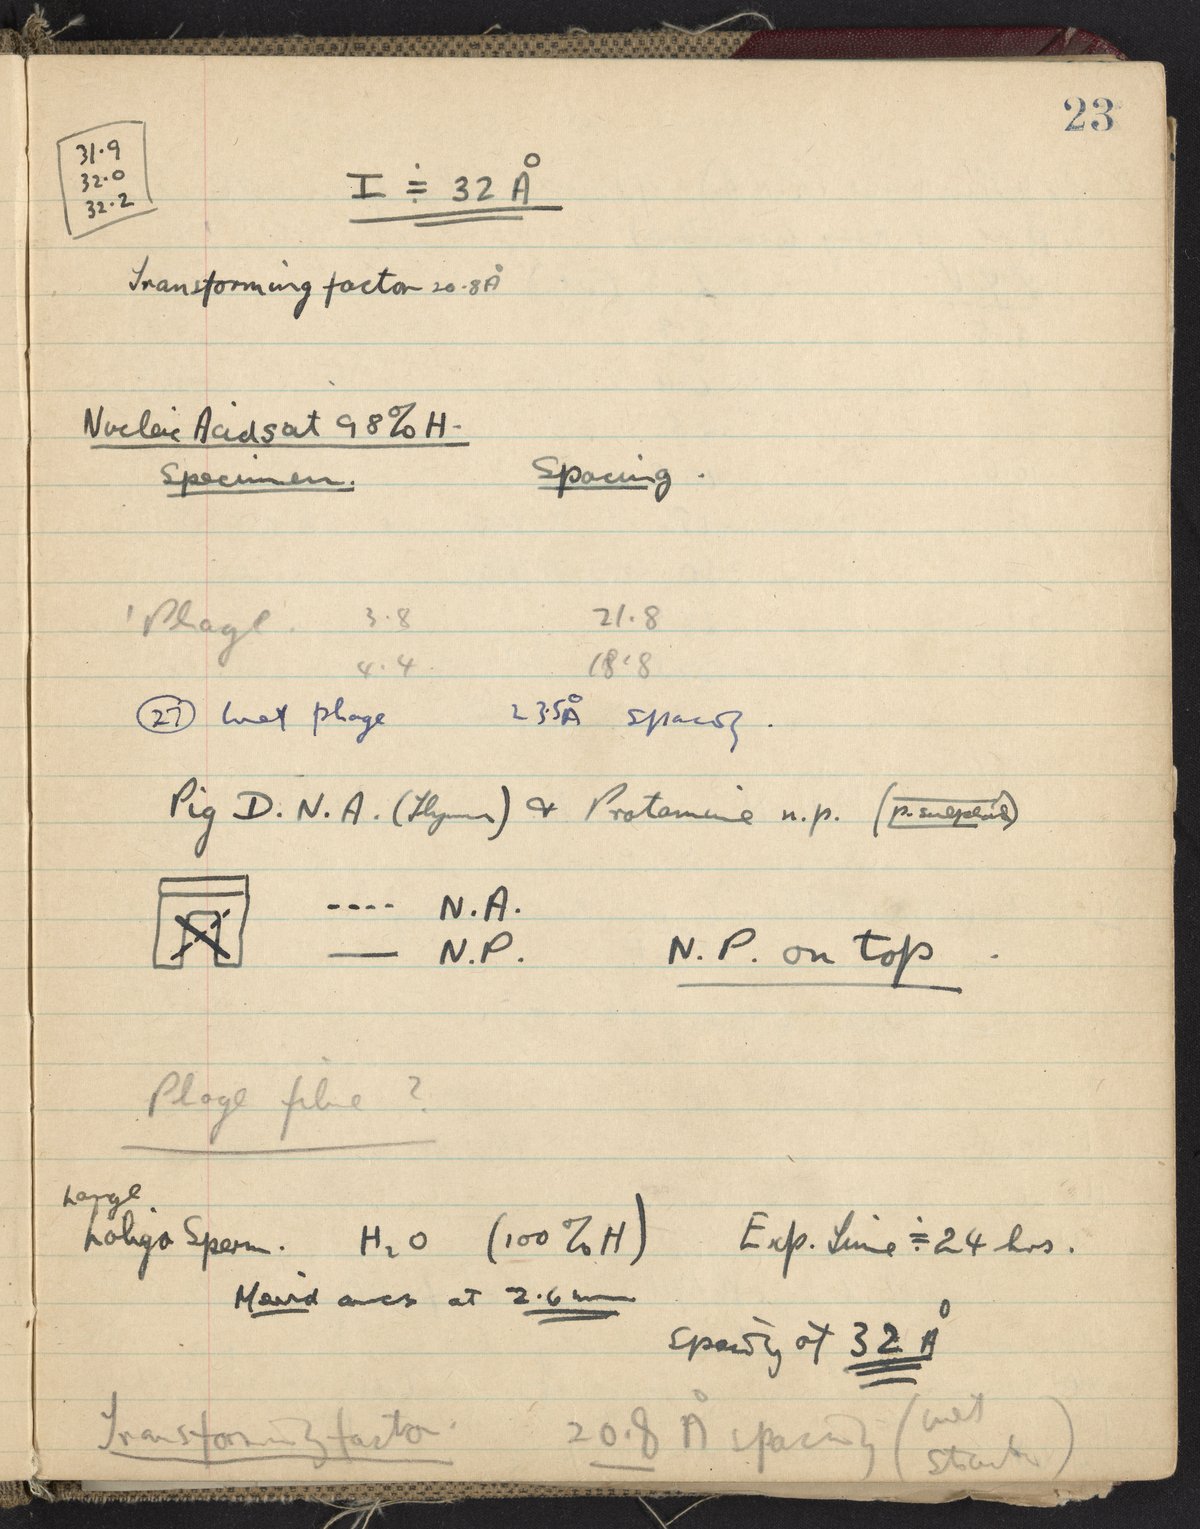 23
31.9
32.0
32.2
I ≑ 32 Å
Transforming factor 20.8 Å
Nucleic Acids at 98% H.
Specimen. Spacing.
Phage. 3.8 21.8
4.4 18.8
27 wet phage 23.5Å spacing.
Pig D.N.A. (Thymus) & Protamine n.p. (p. sulphate)
---- N.A.
— N.P. N.P. on top.
Phage fibre ?
Large
Loligo Sperm. H₂O (100% H) Exp. Time ≑ 24 hrs.
Merid arcs at 2.6 mm
spacing of 32 Å
Transforming factor. 20.8 Å spacing (wet